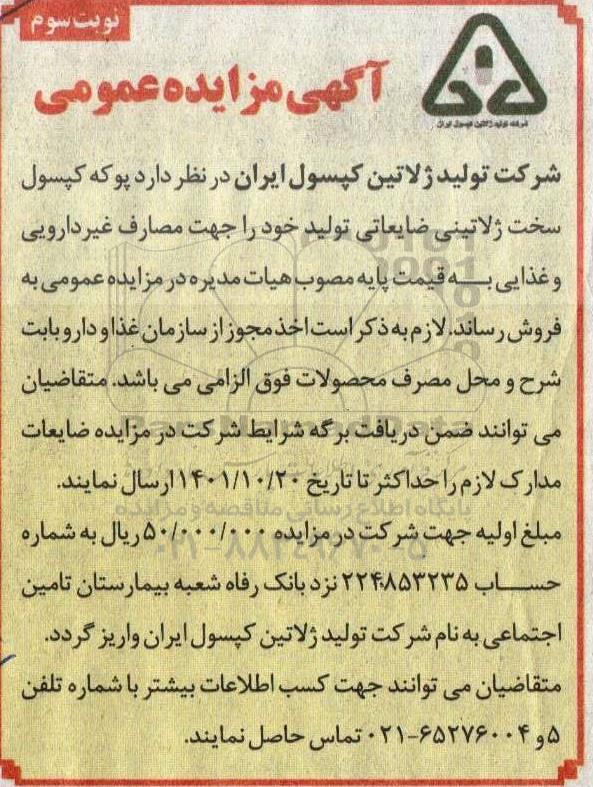 نوبت سوم
شرکت تولید ژلاتین کپسول ایران
آگهی مزایده عمومی
شرکت تولید ژلاتین کپسول ایران در نظر دارد پوکه کپسول
سخت ژلاتینی ضایعاتی تولید خود را جهت مصارف غیردارویی
و غذایی به قیمت پایه مصوب هیات مدیره در مزایده عمومی به
فروش رساند. لازم به ذکر است اخذ مجوز از سازمان غذا و دارو بابت
شرح و محل مصرف محصولات فوق الزامی می باشد. متقاضیان
می توانند ضمن دریافت برگه شرایط شرکت در مزایده ضایعات
مدارک لازم را حداکثر تا تاریخ ۱۴۰۱/۱۰/۲۰ ارسال نمایند.
مبلغ اولیه جهت شرکت در مزایده ۵۰/۰۰۰/۰۰۰ ریال به شماره
حساب ۲۲۴۸۵۳۲۳۵ نزد بانک رفاه شعبه بیمارستان تامین
اجتماعی به نام شرکت تولید ژلاتین کپسول ایران واریز گردد.
متقاضیان می توانند جهت کسب اطلاعات بیشتر با شماره تلفن
۵ و ۶۵۲۷۶۰۰۴-۰۲۱ تماس حاصل نمایند.
ParsNamadData
پایگاه اطلاع رسانی مناقصه و مزایده